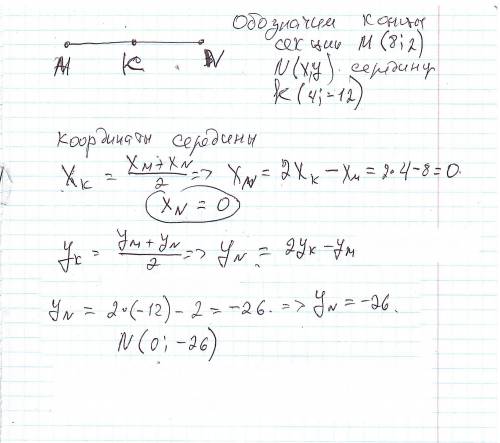 Обозначим концы
секции M(8;2)
N(x,y). середину
K(4;-12)
M K N
координаты середины
X_K = (X_M + X_N)/2 => X_N = 2X_K - X_M = 2·4-8=0.
X_N = 0
y_K = (y_M + y_N)/2 => y_N = 2y_K - y_M
y_N = 2·(-12) - 2 = -26. => y_N = -26.
N(0; -26)